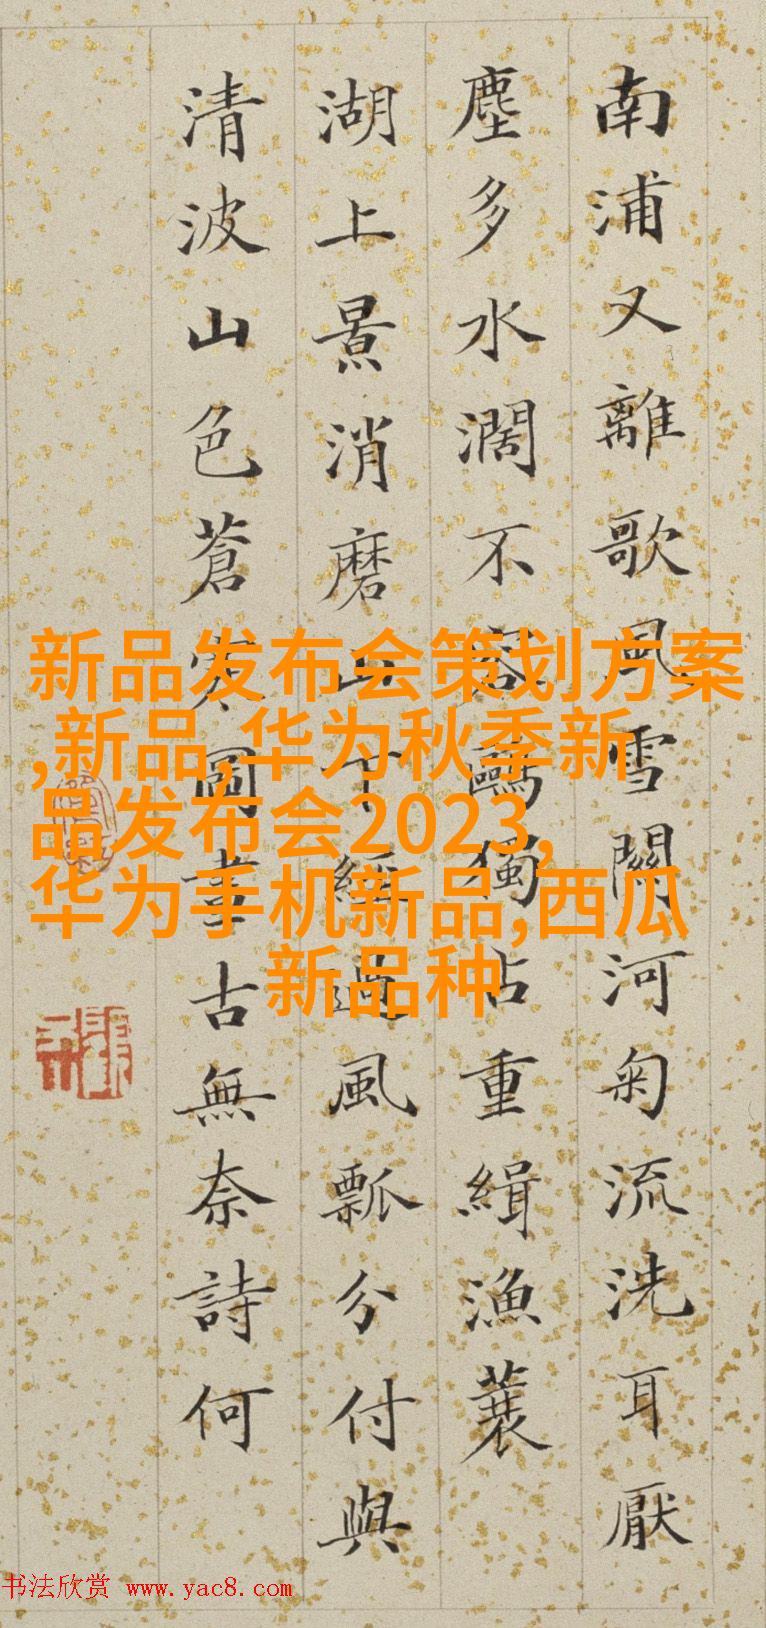 南浦又離歌風雪關河匊流洗耳厭
塵多水濶不容鷗獨占重緝漁蓑
湖上景消磨山下經過風瓢分付與
清波山色蒼寒圖畫古無奈詩何
新品发布会策划方案
,新品,华为秋季新
品发布会2023,
华为手机新品,西瓜
新品种
书法欣赏 www.yac8.com